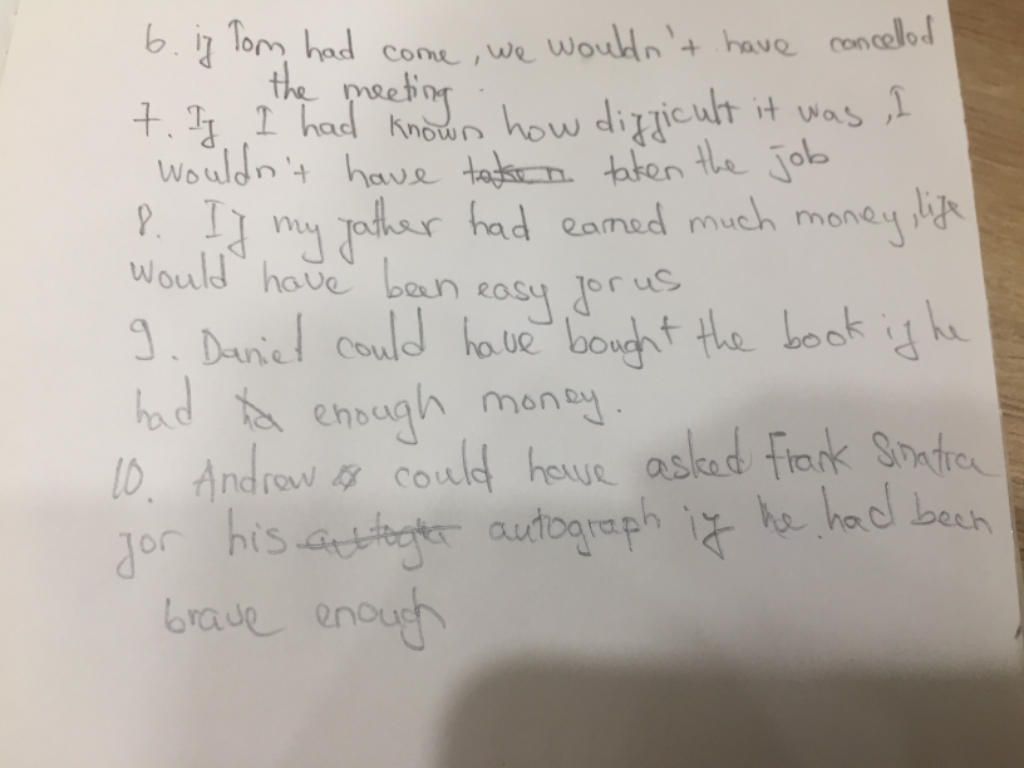 6. if Tom had come, we wouldn't have cancelled
the meeting.
7. If I had known how difficult it was, I
wouldn't have taken taken the job
8. If my father had earned much money, life
would have been easy for us
9. Daniel could have bought the book if he
had ha enough money.
10. Andrew could have asked Frank Sinatra
for his autograph if he had been
brave enough